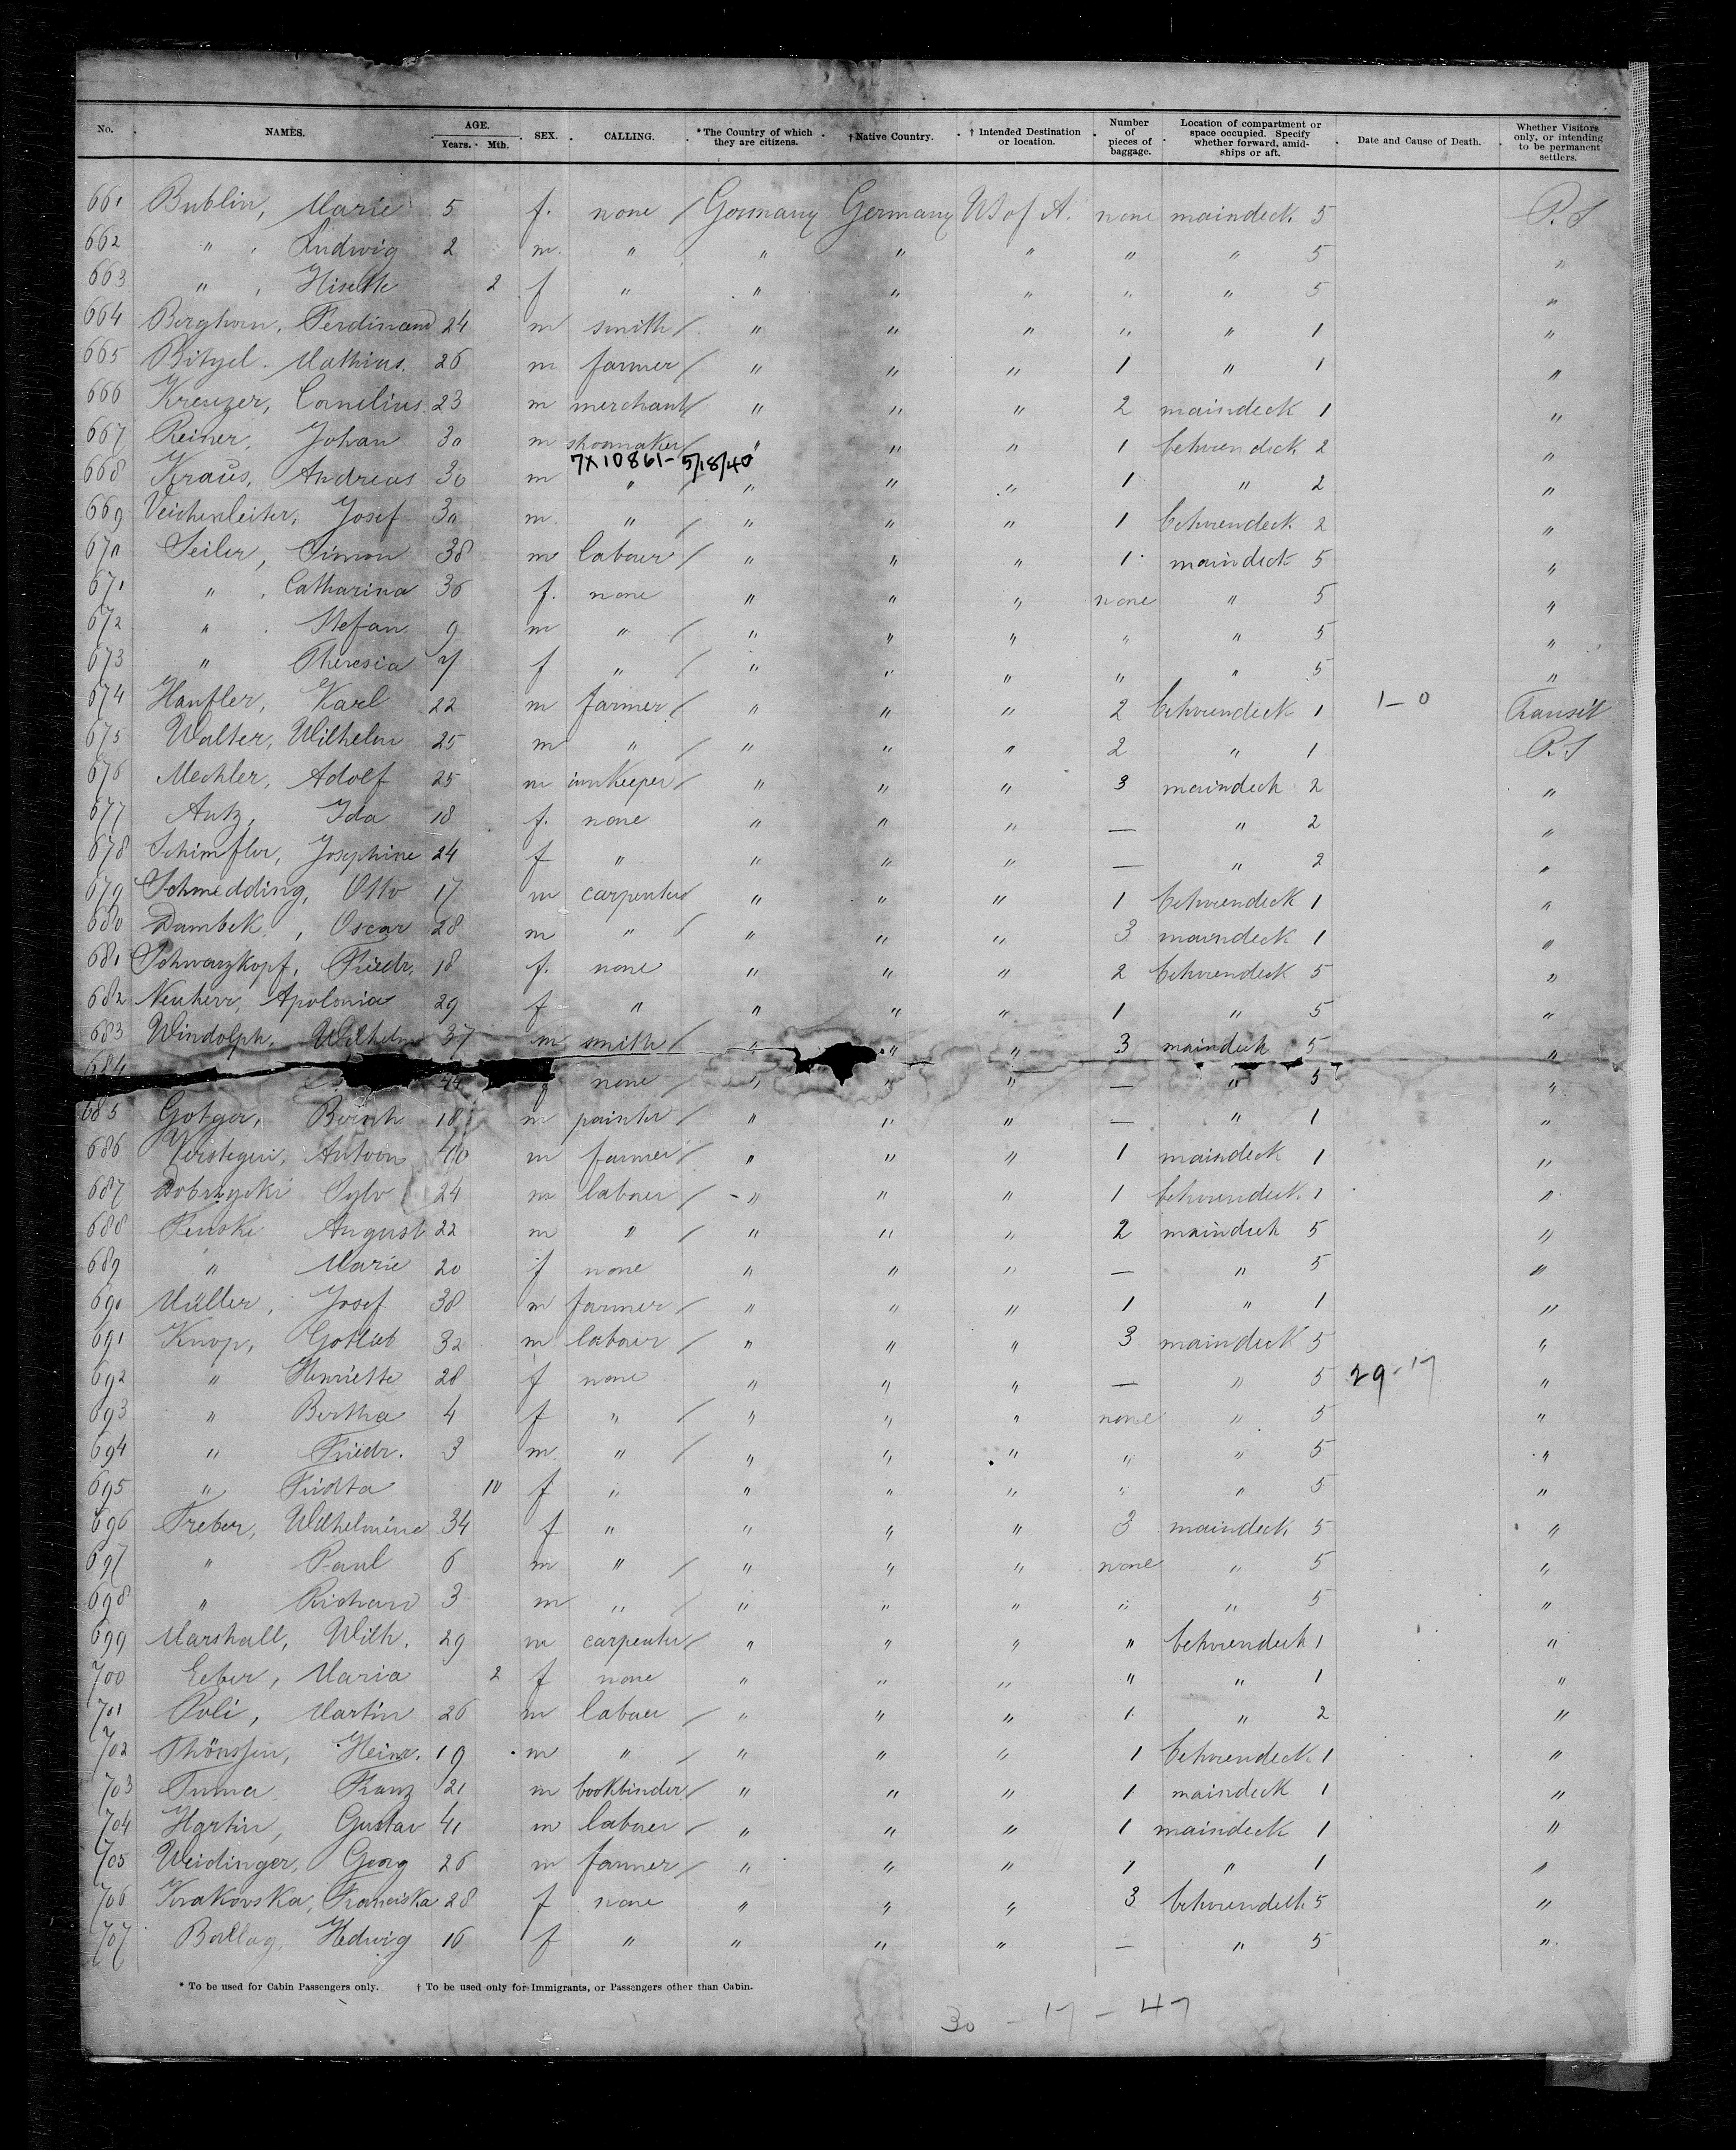 No. NAMES. AGE. Years. Mth. SEX. CALLING. *The Country of which they are citizens. †Native Country. †Intended Destination or location. Number of pieces of baggage. Location of compartment or space occupied. Specify whether forward, amidships or aft. Date and Cause of Death. Whether Visitors only, or intending to be permanent settlers.
661 Bublin, Marie 5 f. none / Germany Germany US of A. none maindeck 5 P. S
662 " , Ludwig 2 m. " " " " " " 5 "
663 " , 2 f " " " " " " 5 "
664 Berghorn, Ferdinand 24 m smith / " " " " " 1 "
665 Bitzel. Mathias. 26 m farmer / " " " 1 " 1 "
666 Kreuzer, Cornelius. 23 m merchant / " " " 2 maindeck 1 "
667 Reiner, Johan 30 m shoemaker / " " " 1 betweendeck 2 "
7X10861- 5/18/40
668 Kraus, Andreas 30 m " / " " " 1 " 2 "
669 Veichenleiter, Josef 30 m. " / " " " 1 betweendeck 2 "
670 Seiler, Simon 38 m labourer / " " " 1 maindeck 5 "
671 " , Catharina 36 f. none " " " none " 5 "
672 " . Stefan 9 m " / " " " " " 5 "
673 " Theresia 7 f " / " " " " " 5 "
674 Haufler, Karl 22 m farmer / " " " 2 betweendeck 1 1-0 Transit
675 Walter, Wilhelm 25 m " / " " " 2 " 1 P. S
676 Mechler, Adolf 25 m innkeeper / " " " 3 maindeck 2 "
677 Antz, Ida 18 f. none " " " — " 2 "
678 Schimfler, Josephine 24 f " " " " — " 2 "
679 Schmedding, Otto 17 m carpenter " " " 1 betweendeck 1 "
680 Dambek, Oscar 28 m " / " " " 3 maindeck 1 "
681 Schwarzkopf, Friedr. 18 f. none " " " 2 betweendeck 5 "
682 Neuherr, Apolonia 29 f " " " " 1 " 5 "
683 Windolph, Wilhelm 37 m smith / " " " 3 maindeck 5 "
684 44 f none / " " " — " 5 "
685 Gotger, Bernh 18 m painter / " " " — " 1 "
686 Verstegen, Antoon 40 m farmer / " " " 1 maindeck 1 "
687 Dobrzycki Sylv 24 m labourer / " " " 1 betweendeck 1 "
688 Renske August 22 m " / " " " 2 maindeck 5 "
689 " Marie 20 f none " " " — " 5 "
690 Müller, Josef 38 m farmer / " " " 1 " 1 "
691 Knop, Gotlieb 32 m labourer / " " " 3 maindeck 5 "
692 " Henriette 28 f none " " " — " 5 29-17 "
693 " Bertha 4 f " / " " " none " 5 "
694 " Friedr. 3 m. " / " " " " " 5 "
695 " 10 f " " " " " " 5 "
696 Treber, Wilhelmine 34 f " " " " 3 maindeck 5 "
697 " Paul 6 m " / " " " none " 5 "
698 " Richard 3 m " / " " " " " 5 "
699 Marshall, Wilh. 29 m carpenter / " " " " betweendeck 1 "
700 Eeber, Maria 2 f none " " " " " 1 "
701 Poli, Martin 26 m labourer / " " " 1 " 2 "
702 Thönssen, Heinr. 19 m " / " " " 1 betweendeck 1 "
703 Tuma Franz 21 m bookbinder / " " " 1 maindeck 1 "
704 Hartin, Gustav 41 m labourer / " " " 1 maindeck 1 "
705 Weidinger, Georg 26 m farmer / " " " 1 " 1 "
706 Krakovska, Franciska 28 f none " " " 3 betweendeck 5 "
707 Ballag, Hedwig 16 f " " " " — " 5 "
* To be used for Cabin Passengers only. † To be used only for Immigrants, or Passengers other than Cabin.
30 - 17 - 47